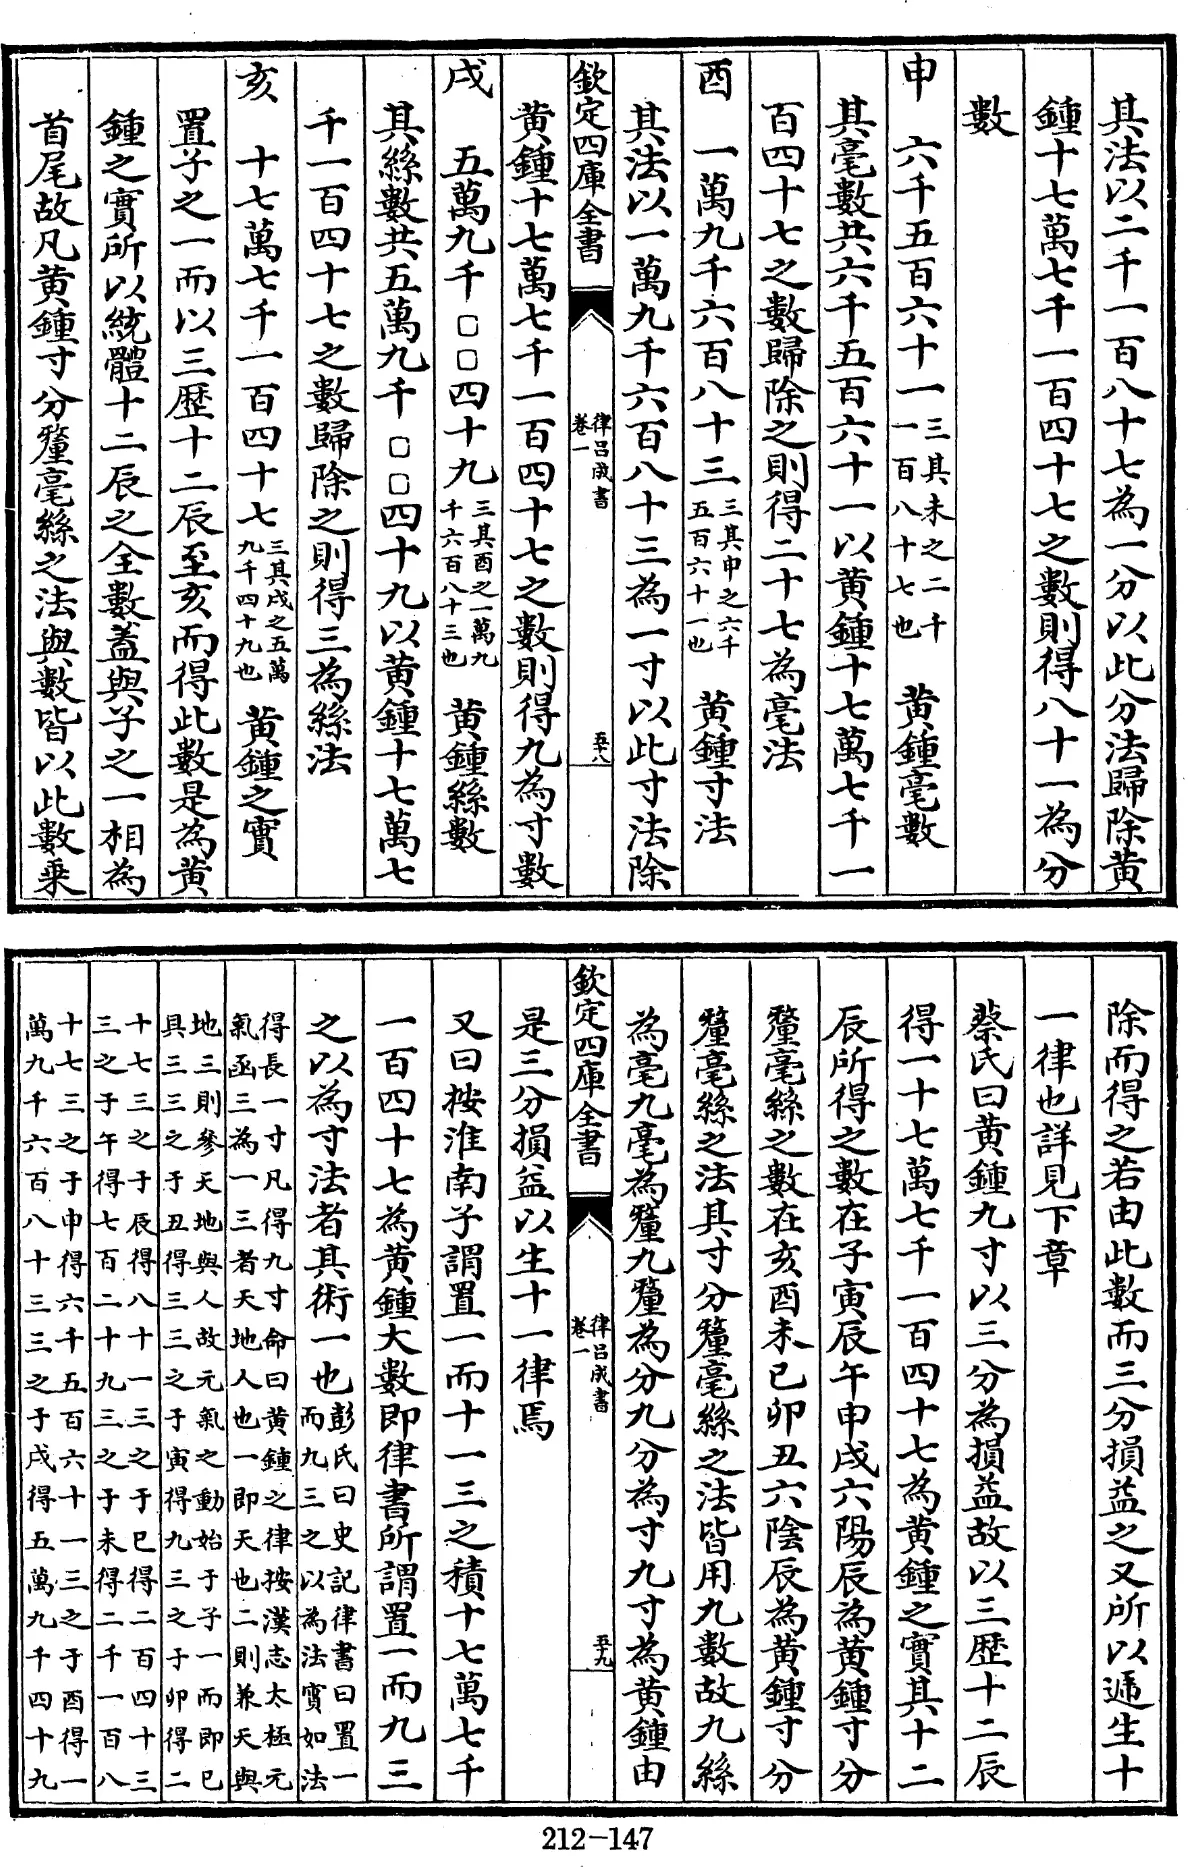 其法以二千一百八十七為一分以此分法歸除黃
鍾十七萬七千一百四十七之數則得八十一為分
數
申　六千五百六十一三其未之二千一百八十七也　黃鍾毫數
其毫數共六千五百六十一以黃鍾十七萬七千一
百四十七之數歸除之則得二十七為毫法
酉　一萬九千六百八十三三其申之六千五百六十一也　黃鍾寸法
其法以一萬九千六百八十三為一寸以此寸法除
欽定四庫全書
律呂成書
卷一
五十八
黃鍾十七萬七千一百四十七之數則得九為寸數
戌　五萬九千□□四十九三其酉之一萬九千六百八十三也　黃鍾絲數
其絲數共五萬九千□□四十九以黃鍾十七萬七
千一百四十七之數歸除之則得三為絲法
亥　十七萬七千一百四十七三其戌之五萬九千四十九也　黃鍾之實
置子之一而以三歷十二辰至亥而得此數是為黃
鍾之實所以統體十二辰之全數蓋與子之一相為
首尾故凡黃鍾寸分釐毫絲之法與數皆以此數乗
除而得之若由此數而三分損益之又所以遞生十
一律也詳見下章
蔡氏曰黃鍾九寸以三分為損益故以三歷十二辰
得一十七萬七千一百四十七為黃鍾之實其十二
辰所得之數在子寅辰午申戌六陽辰為黃鍾寸分
釐毫絲之數在亥酉未巳卯丑六陰辰為黃鍾寸分
釐毫絲之法其寸分釐毫絲之法皆用九數故九絲
為毫九毫為釐九釐為分九分為寸九寸為黃鍾由
欽定四庫全書
律呂成書
卷一
五十九
是三分損益以生十一律焉
又曰按淮南子謂置一而十一三之積十七萬七千
一百四十七為黃鍾大數即律書所謂置一而九三
之以為寸法者其術一也彭氏曰史記律書曰置一
而九三之以為法實如法
得長一寸凡得九寸命曰黃鍾之律按漢志太極元
氣函三為一三者天地人也一即天也二則兼天與
地三則參天地與人故元氣之動始于子一而即已
具三三之于丑得三三之于寅得九三之于卯得二
十七三之于辰得八十一三之于巳得二百四十三
三之于午得七百二十九三之于未得二千一百八
十七三之于申得六千五百六十一三之于酉得一
萬九千六百八十三三之于戌得五萬九千四十九
212-147